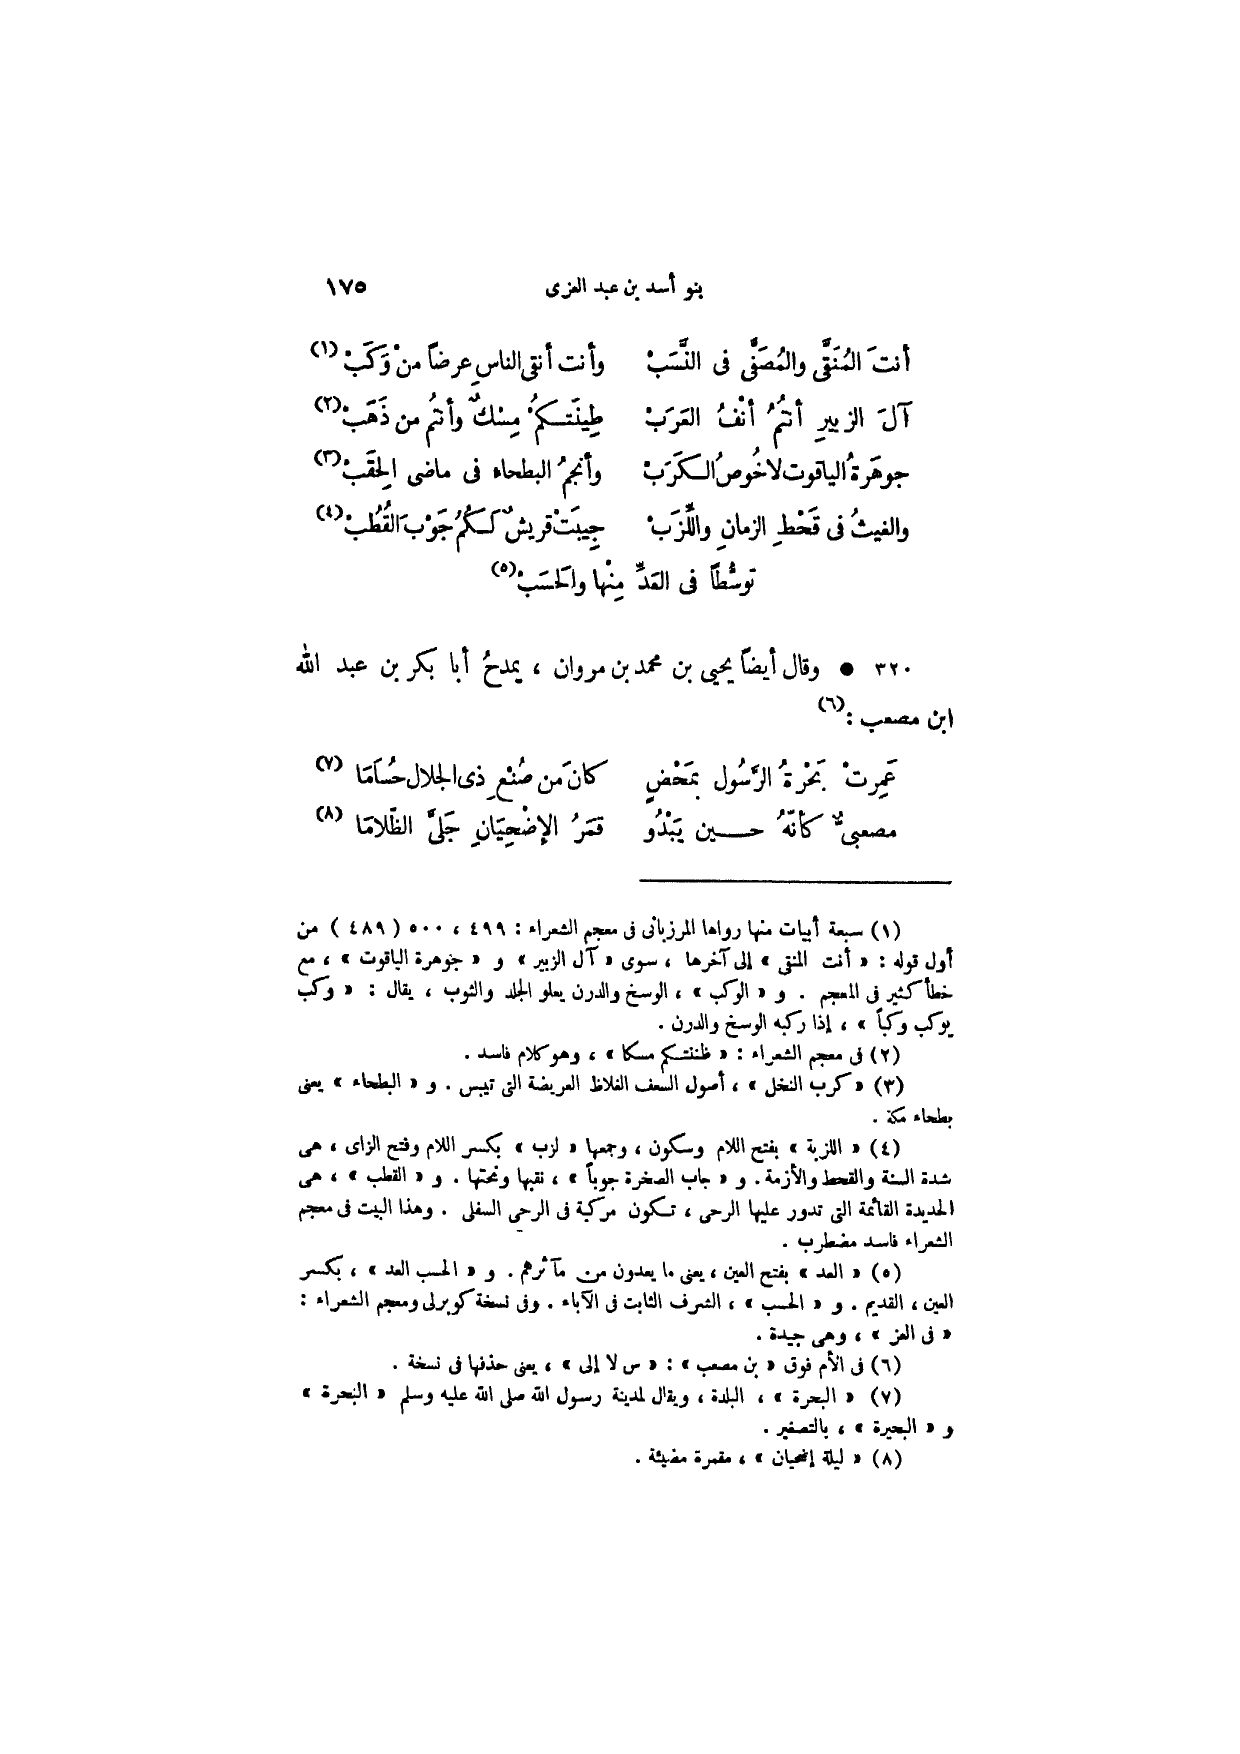 بنو أسد بن عبد العزى ١٧٥
أنتَ المُنَقَّى والمُصَفَّى فى النَّسَبْ وأنت أنقى الناسِ عرضاً منْ وَكَبْ (١)
آلَ الزبيرِ أنتُمُ أنْفُ العَرَبْ طِينَتكمُ مِسْكٌ وأنتُم من ذَهَبْ (٢)
جوهَرةُ الياقوت لا خُوصُ الكَرَبْ وأنجمُ البطحاء فى ماضى الحِقَبْ (٣)
والغيثُ فى قَحْطِ الزمانِ واللِّزَبْ جِيبَتْ قريشٌ لكُمُ جَوْبَ القُطُبْ (٤)
توسُّطاً فى العَدِّ مِنْها والحَسَبْ (٥)
٣٢٠ ● وقال أيضاً يحيى بن محمد بن مروان ، يمدحُ أبا بكر بن عبد الله
ابن مصعب : (٦)
عَمِرتْ بَحْرةُ الرَّسُول بمَحْضٍ كانَ من صُنْعِ ذى الجلال حُسَامَا (٧)
مصعبىٌّ كأنّهُ حــين يَبْدُو قمَرُ الإضْحِيَانِ جَلَّى الظّلامَا (٨)
(١) سبعة أبيات منها رواها المرزبانى فى معجم الشعراء : ٤٩٩ ، ٥٠٠ ( ٤٨٩ ) من
أول قوله : « أنت المنقى » إلى آخرها ، سوى « آل الزبير » و « جوهرة الياقوت » ، مع
خطأ كثير فى المعجم . و « الوكب » ، الوسخ والدرن يعلو الجلد والثوب ، يقال : « وكب
يوكب وكباً » ، إذا ركبه الوسخ والدرن .
(٢) فى معجم الشعراء : « ظننتكم مسكا » ، وهو كلام فاسد .
(٣) « كرب النخل » ، أصول السعف الغلاظ العريضة التى تيبس . و « البطحاء » يعنى
بطحاء مكة .
(٤) « اللزبة » بفتح اللام وسكون ، وجمعها « لزب » بكسر اللام وفتح الزاى ، هى
شدة السنة والقحط والأزمة . و « جاب الصخرة جوباً » ، نقبها ونحتها . و « القطب » ، هى
الحديدة القائمة التى تدور عليها الرحى ، تكون مركبة فى الرحى السفلى . وهذا البيت فى معجم
الشعراء فاسد مضطرب .
(٥) « العد » بفتح العين ، يعنى ما يعدون من مآثرهم . و « الحسب العد » ، بكسر
العين ، القديم . و « الحسب » ، الشرف الثابت فى الآباء . وفى نسخة كوبرلى ومعجم الشعراء :
« فى العز » ، وهى جيدة .
(٦) فى الأم فوق « بن مصعب » : « س لا إلى » ، يعنى حذفها فى نسخة .
(٧) « البحرة » ، البلدة ، ويقال لمدينة رسول الله صلى الله عليه وسلم « البحرة »
و « البحيرة » ، بالتصغير .
(٨) « ليلة إضحيان » ، مقمرة مضيئة .